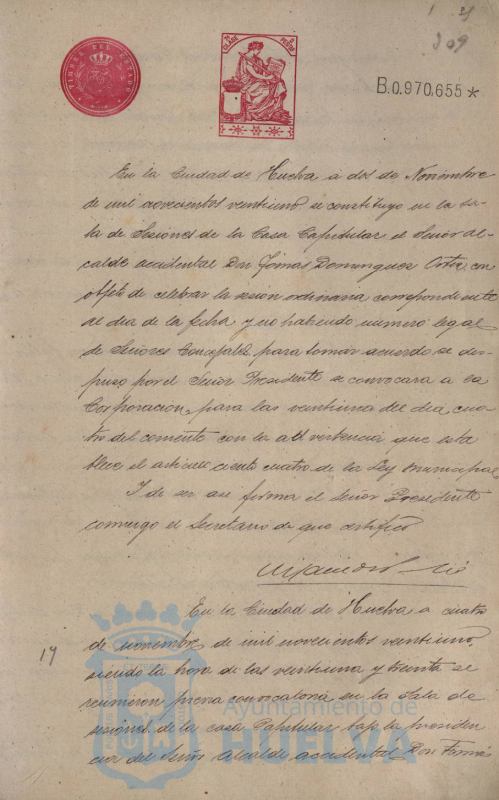 TIMBRE DEL ESTADO
7ª CLASE
PESETA
209
B.0.970.655 *
En la Ciudad de Huelva á dos de Noviembre
de mil novecientos veintiuno se constituyo en la Sa-
la de Sesiones de la Casa Capitular el Señor Al-
calde accidental Don Tomás Dominguez Ortiz con
objeto de celebrar la sesion ordinaria correspondiente
al dia de la fecha y no habiendo numero legal
de Señores Concejales para tomar acuerdo se dis-
puso por el Señor Presidente se convocara a la
Corporación, para las veintiuna del dia cua-
tro del corriente con la advertencia que esta
blece el articulo ciento cuatro de la Ley municipal
I de ser asi firma el Señor Presidente
conmigo el Secretario de que certifico
En la Ciudad de Huelva a cuatro
17
de noviembre de mil novecientos veintiuno,
siendo la hora de las veintiuna y treinta se
reunieron previa convocatoria en la Sala de
sesiones de la casa Capitular bajo la presiden
cia del Señor Alcalde accidental Don Tomás
Ayuntamiento de
HUELVA